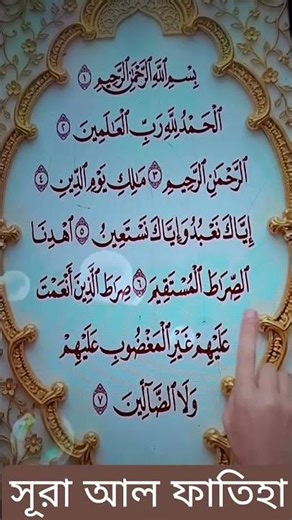 بِسْمِ ٱللَّهِ ٱلرَّحْمَٰنِ ٱلرَّحِيمِ ١
ٱلْحَمْدُ لِلَّهِ رَبِّ ٱلْعَٰلَمِينَ ٢
ٱلرَّحْمَٰنِ ٱلرَّحِيمِ ٣ مَٰلِكِ يَوْمِ ٱلدِّينِ ٤
إِيَّاكَ نَعْبُدُ وَإِيَّاكَ نَسْتَعِينُ ٥ ٱهْدِنَا
ٱلصِّرَٰطَ ٱلْمُسْتَقِيمَ ٦ صِرَٰطَ ٱلَّذِينَ أَنْعَمْتَ
عَلَيْهِمْ غَيْرِ ٱلْمَغْضُوبِ عَلَيْهِمْ
وَلَا ٱلضَّآلِّينَ ٧
সূরা আল ফাতিহা